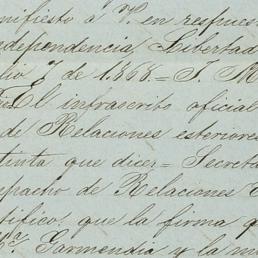 nifiesto á V. en respues
ndependencia, Libertad
lio 7 de 1868.= J. M
El infrascrito oficial
de Relaciones esteriores
tenta que dice= Secreta
spacho de Relaciones E
tifico: que la firma q
Garmendia y la mi